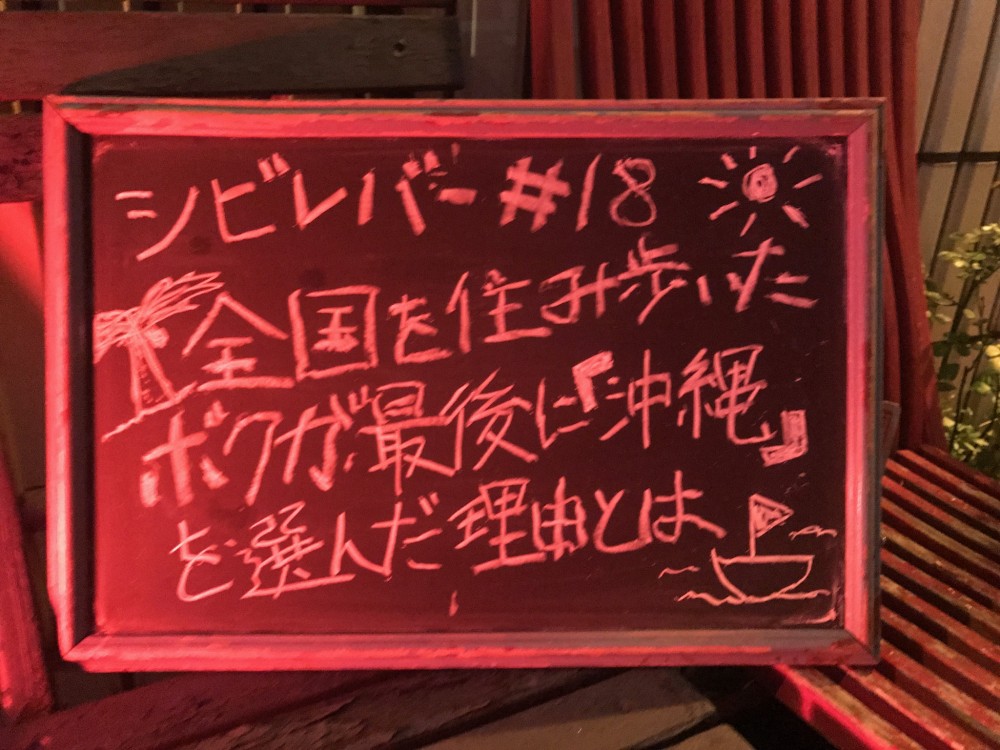 シビレバー #18
全国を住み歩いた
ボクが最後に『沖縄』
を選んだ理由とは